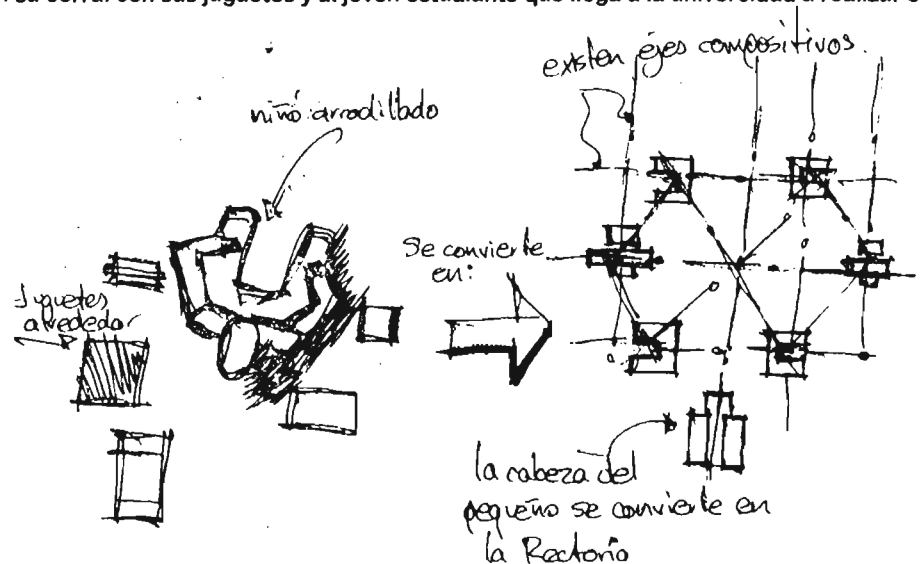 su corral con sus juguetes y al joven estudiante que llega a la universidad a realizar
existen ejes compositivos.
niño arrodillado
Juguetes
alrededor
Se convierte
en:
la cabeza del
pequeño se convierte en
la Rectoría